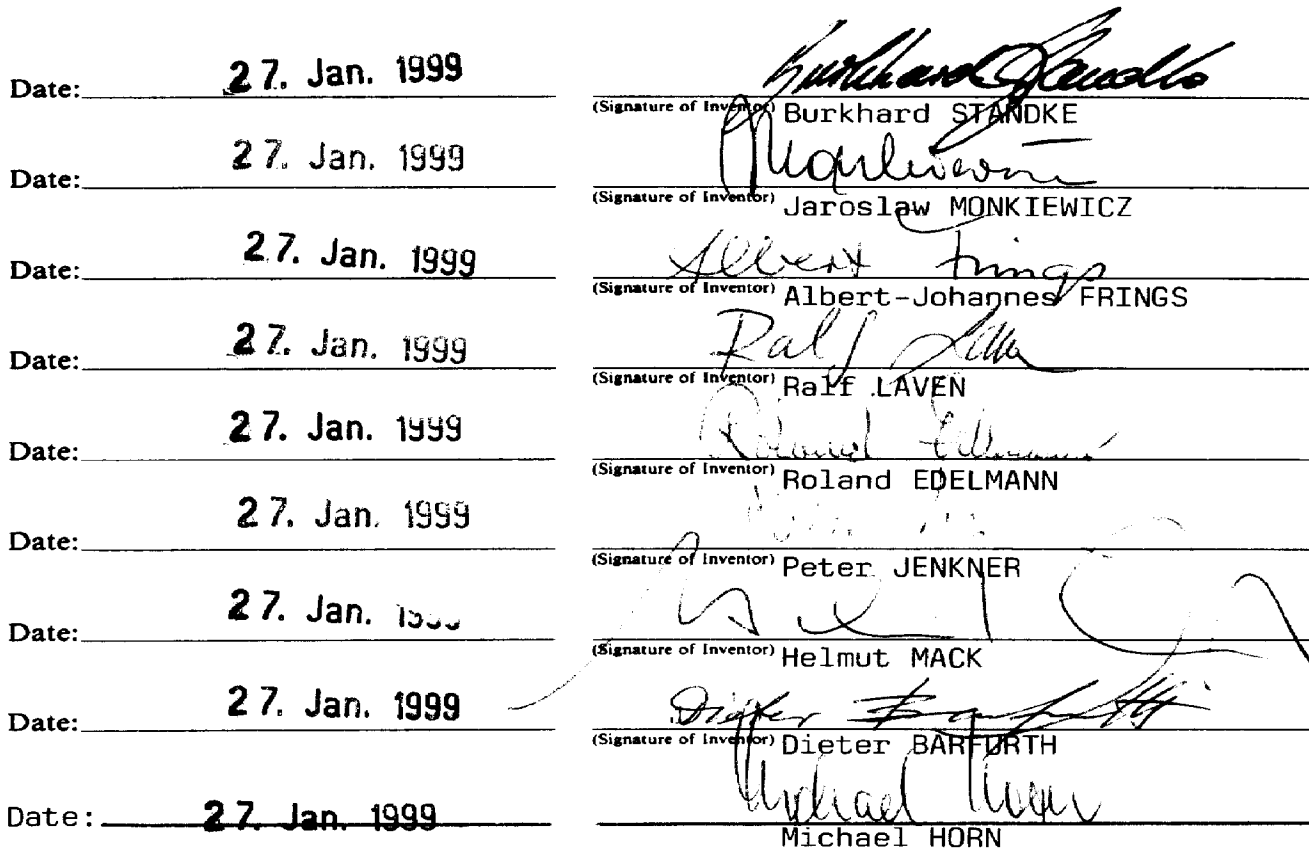 Date: 27. Jan. 1999 Burkhard Standke
(Signature of Inventor) Burkhard STANDKE
Date: 27. Jan. 1999
(Signature of Inventor) Jaroslaw MONKIEWICZ
Date: 27. Jan. 1999 Albert Frings
(Signature of Inventor) Albert-Johannes FRINGS
Date: 27. Jan. 1999 Ralf
(Signature of Inventor) Ralf LAVEN
Date: 27. Jan. 1999 Roland Edelmann
(Signature of Inventor) Roland EDELMANN
Date: 27. Jan. 1999
(Signature of Inventor) Peter JENKNER
Date: 27. Jan.
(Signature of Inventor) Helmut MACK
Date: 27. Jan. 1999 Dieter Barfurth
(Signature of Inventor) Dieter BARFURTH
Date: 27. Jan. 1999 Michael Horn
Michael HORN